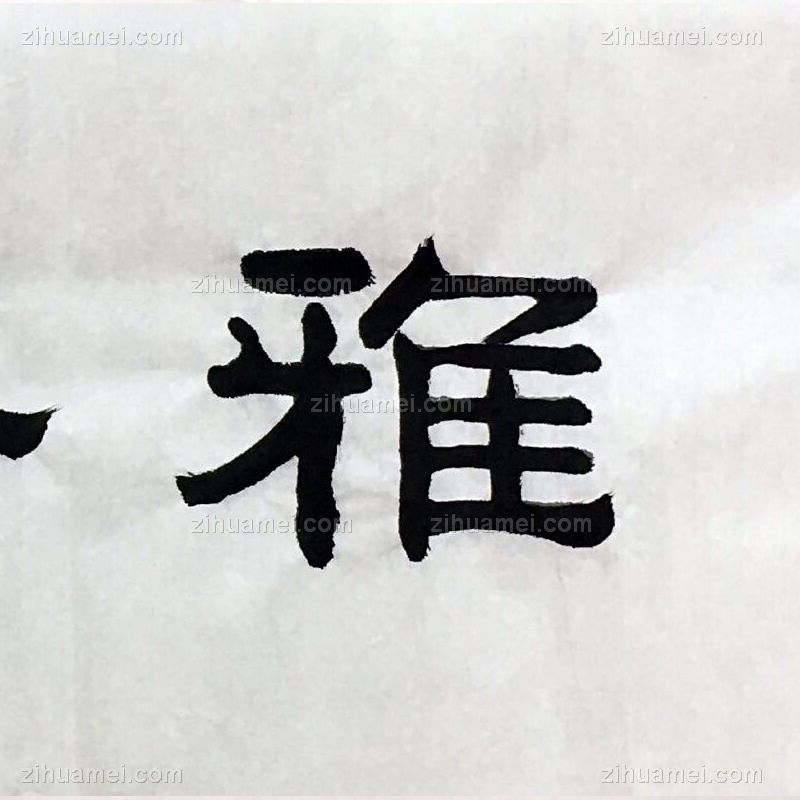 zihuamei.com zihuamei.com
雅
zihuamei.com
zihuamei.com
zihuamei.com zihuamei.com
zihuamei.com zihuamei.com